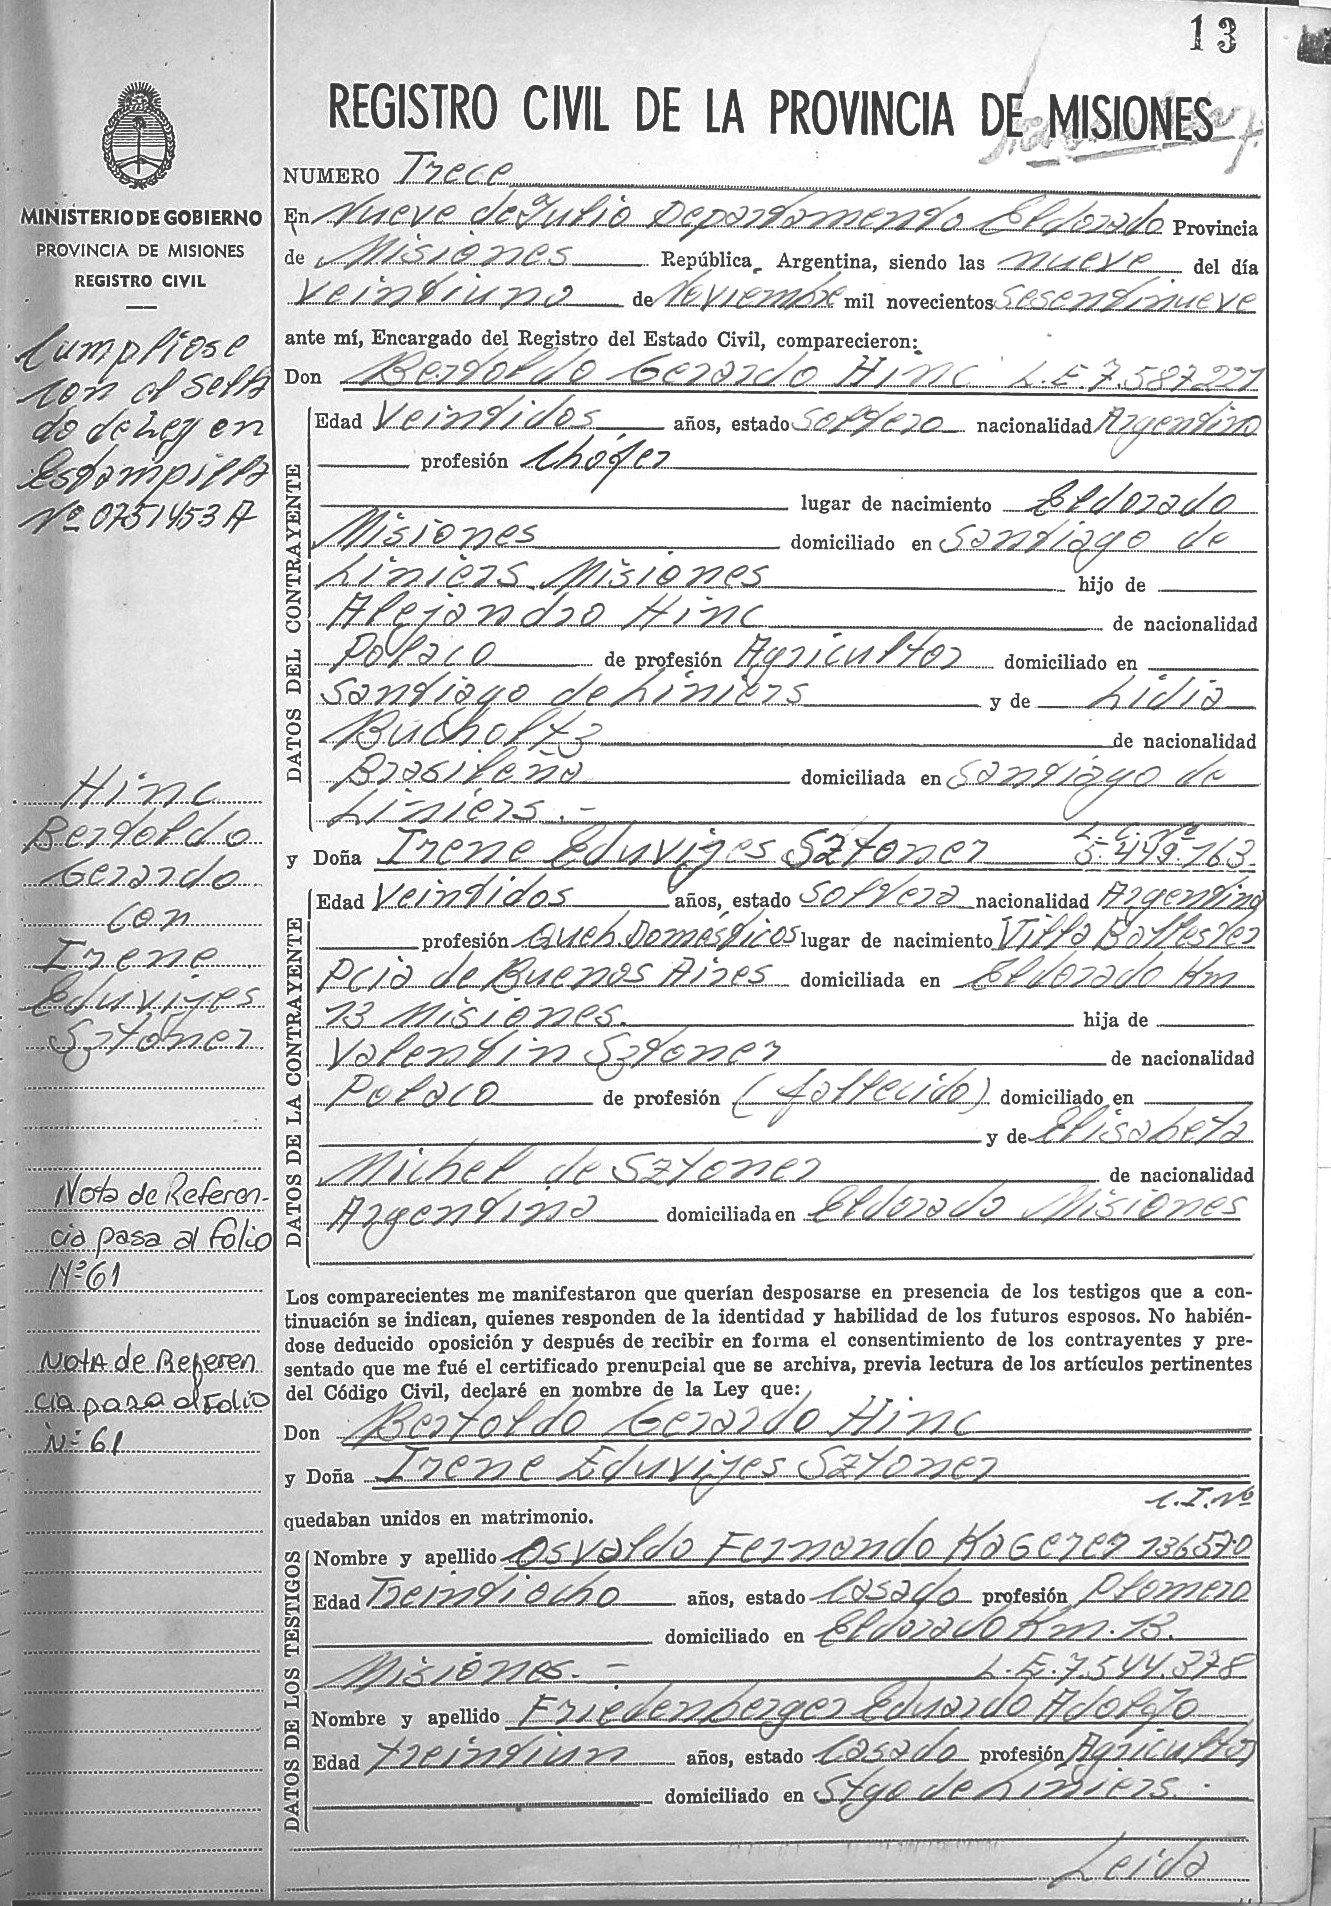 13
REGISTRO CIVIL DE LA PROVINCIA DE MISIONES
NUMERO Trece
En Nueve de Julio Departamento Eldorado Provincia
de Misiones República Argentina, siendo las nueve del día
veintiuno de Noviembre mil novecientos sesentinueve
ante mí, Encargado del Registro del Estado Civil, comparecieron:
Don Bertoldo Gerardo Hinc L.E. 7.587.221
DATOS DEL CONTRAYENTE
Edad Veintidos años, estado soltero nacionalidad Argentino
profesión Chófer
lugar de nacimiento Eldorado
Misiones domiciliado en Santiago de
Liniers Misiones hijo de
Alejandro Hinc de nacionalidad
Polaco de profesión Agricultor domiciliado en
Santiago de Liniers y de Lidia
Bucholtz de nacionalidad
Brasileña domiciliada en Santiago de
Liniers.-
L.C. Nº
y Doña Irene Eduvijes Sztoner 5.449.763
DATOS DE LA CONTRAYENTE
Edad Veintidos años, estado soltera nacionalidad Argentina
profesión Queh Domésticos lugar de nacimiento Villa Ballester
Pcia de Buenos Aires domiciliada en Eldorado Km
13 Misiones. hija de
Valentin Sztoner de nacionalidad
Polaco de profesión (fallecido) domiciliado en
y de Elisabeta
Michel de Sztoner de nacionalidad
Argentina domiciliada en Eldorado Misiones
Los comparecientes me manifestaron que querían desposarse en presencia de los testigos que a con-
tinuación se indican, quienes responden de la identidad y habilidad de los futuros esposos. No habién-
dose deducido oposición y después de recibir en forma el consentimiento de los contrayentes y pre-
sentado que me fué el certificado prenupcial que se archiva, previa lectura de los artículos pertinentes
del Código Civil, declaré en nombre de la Ley que:
Don Bertoldo Gerardo Hinc
y Doña Irene Eduvijes Sztoner
quedaban unidos en matrimonio. C.I. Nº
DATOS DE LOS TESTIGOS
Nombre y apellido Osvaldo Fernando Kagerer 136570
Edad Treintiocho años, estado Casado profesión Plomero
domiciliado en Eldorado Km. 13.
Misiones.- L.E. 7.544.378
Nombre y apellido Friedenberger Eduardo Adolfo
Edad treintiun años, estado Casado profesión Agricultor
domiciliado en Stgo de Liniers.
Leida
MINISTERIO DE GOBIERNO
PROVINCIA DE MISIONES
REGISTRO CIVIL
Cumpliose
con el sella
do de Ley en
Estampilla
Nº 0751453 A
Hinc
Bertoldo
Gerardo
con
Irene
Eduvijes
Sztoner
Nota de Referen-
cia pasa al folio
Nº 61
Nota de Referen
cia pasa al Folio
Nº 61